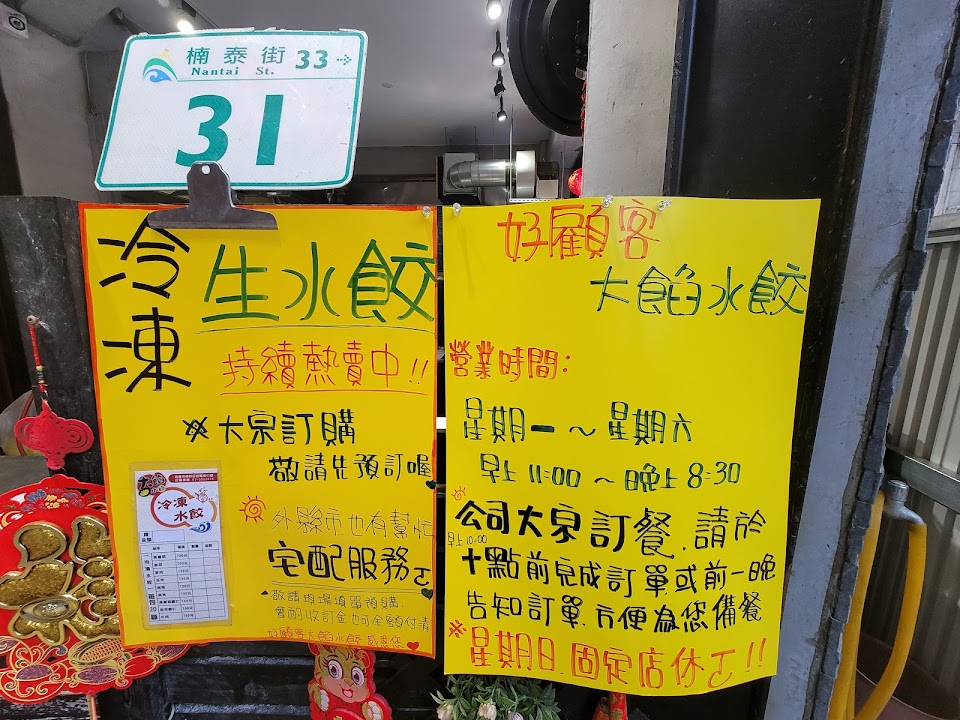 楠泰街 33
Nantai St.
31
冷凍
生水餃
持續熱賣中!!
※大宗訂購
敬請先預訂喔
冷凍
水餃
外縣市也有幫忙
宅配服務
敬請現場填單預購
會酌收訂金也可全額付清
好顧客大餡水餃 感恩您
好顧客
大餡水餃
營業時間:
星期一～星期六
早上11:00～晚上8:30
公司大宗訂餐.請於
早上10:00
十點前完成訂單或前一晚
告知訂單.方便為您備餐
※星期日.固定店休!!